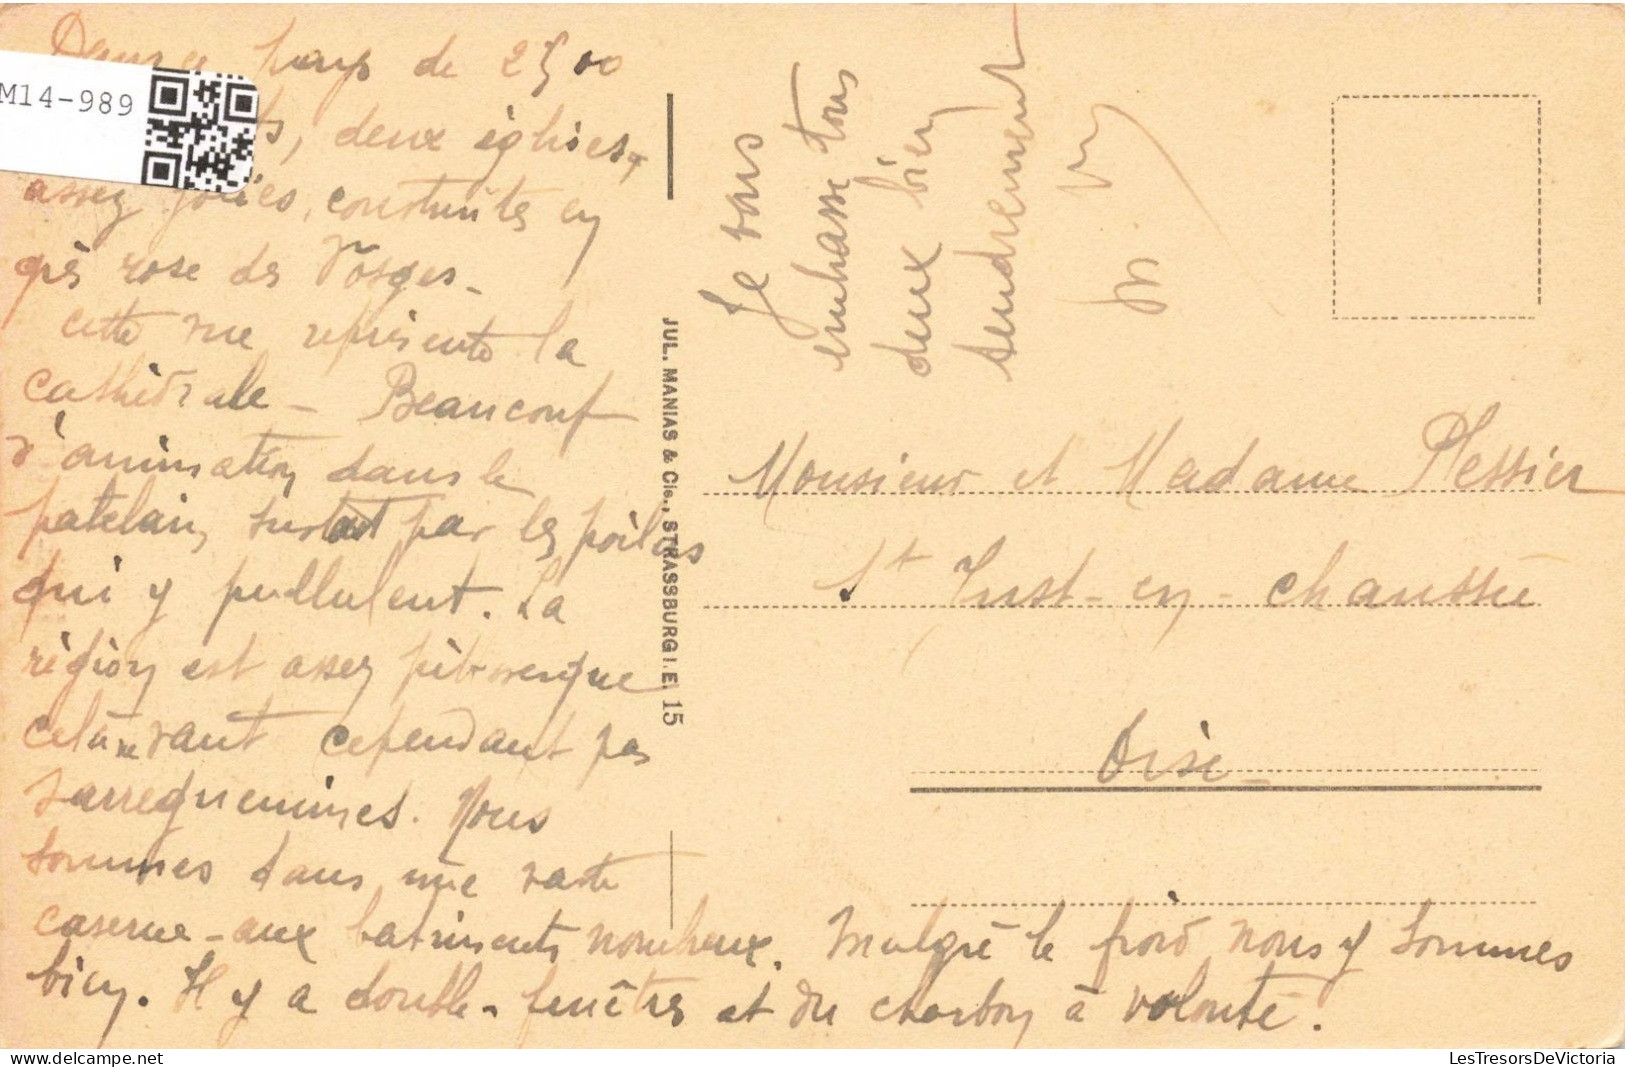 Dans ce pays de 2500
deux églises,
assez jolies, construites en
grès rose des Vosges -
cette vue représente la
cathédrale - Beaucoup
d'animation dans le
patelain, surtout par les poilus
qui y pullulent. La
région est assez pittoresque
cela ne vaut cependant pas
Sarreguemines. Nous
sommes dans une vaste
caserne - aux batiments nombreux. Malgré le froid nous y sommes
bien. Il y a double - fenêtres et du charbon à volonté.
M14-989
JUL. MANIAS & Cie., STRASSBURG i. E. 15
Je vous
embrasse tous
deux bien
tendrement
Monsieur et Madame Plessier
St Just - en - chaussée
Oise -
LesTresorsDeVictoria